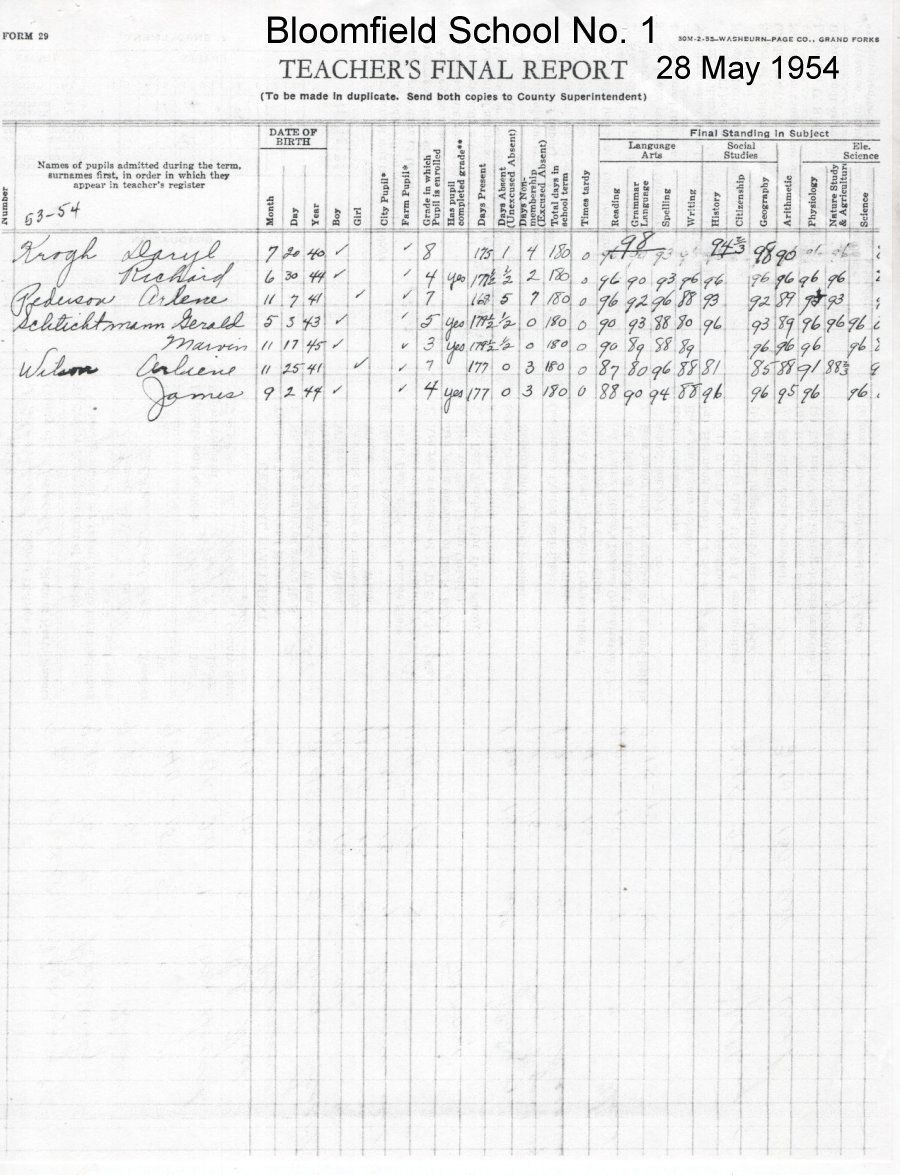 Bloomfield School No. 1
FORM 29
50M-2-53-WASHBURN-PAGE CO., GRAND FORKS
TEACHER'S FINAL REPORT 28 May 1954
(To be made in duplicate. Send both copies to County Superintendent)
Number
Names of pupils admitted during the term, surnames first, in order in which they appear in teacher's register
53-54
DATE OF BIRTH
Month Day Year Boy Girl City Pupil* Farm Pupil*
Grade in which Pupil is enrolled
Has pupil completed grade**
Days Present
Days Absent (Unexcused Absent)
Days Non-membership (Excused Absent)
Total days in school term
Times tardy
Final Standing in Subject
Language Arts
Social Studies
Ele. Science
Reading Grammar Language Spelling Writing History Citizenship Geography Arithmetic Physiology Nature Study & Agriculture Science
Krogh Daryl 7 20 40 ✓ ✓ 8 175 1 4 180 0 98 94⅔ 98 90
Richard 6 30 44 ✓ ✓ 4 yes 177½ ½ 2 180 0 96 90 93 96 96 96 96 96 96
Pederson Arlene 11 7 41 ✓ ✓ 7 168 5 7 180 0 96 92 96 88 93 92 89 93
Schlichtmann Gerald 5 3 43 ✓ ✓ 5 yes 179½ ½ 0 180 0 90 93 88 80 96 93 89 96 96 96
Marvin 11 17 45 ✓ ✓ 3 yes 179½ ½ 0 180 0 90 89 88 89 96 96 96 96
Wilson Arliene 11 25 41 ✓ ✓ 7 177 0 3 180 0 87 80 96 88 81 85 88 91 88⅔
James 9 2 44 ✓ ✓ 4 yes 177 0 3 180 0 88 90 94 88 96 96 95 96 96